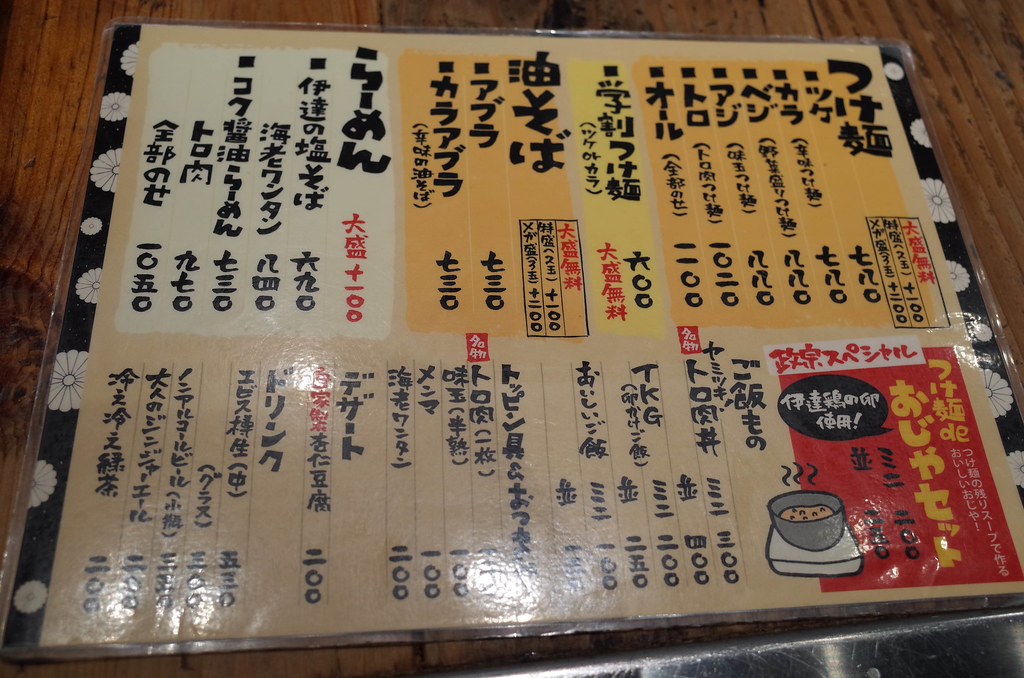 つけ麺
大盛無料
特盛(2玉)+100
メガ盛(3玉)+200
■ツケ 七八〇
■カラ(辛味つけ麺) 七八〇
■ベジ(野菜盛りつけ麺) 八八〇
■アジ(味玉つけ麺) 八八〇
■トロ(トロ肉つけ麺) 一〇二〇
■オール(全部のせ) 一一〇〇
■学割つけ麺
(ツケorカラ)
六〇〇
大盛無料
油そば
大盛無料
■アブラ 七三〇
■カラアブラ
(辛味の油そば)
七三〇
らーめん
大盛+一〇〇
■伊達の塩そば 六九〇
海老ワンタン 八四〇
■コク醤油らーめん 七三〇
トロ肉 九七〇
全部のせ 一〇五〇
政宗スペシャル
つけ麺de
おじやセット
つけ麺の残りスープで作る
おいしいおじや!
伊達鶏の卵
使用!
ミニ 二〇〇
並
ご飯もの
名物
トロ肉丼
ミニ 三〇〇
並 四〇〇
TKG
(卵かけご飯)
ミニ 二〇〇
並 二五〇
おいしいご飯
ミニ 一〇〇
並
トッピン具&おつまみ
名物
トロ肉(一枚)
味玉(半熟) 一〇〇
メンマ 一〇〇
海老ワンタン 二〇〇
デザート
自家製杏仁豆腐 二〇〇
ドリンク
エビス樽生(中) 五三〇
(グラス)
ノンアルコールビール(小瓶)
大人のジンジャーエール
冷え冷え緑茶 二〇〇